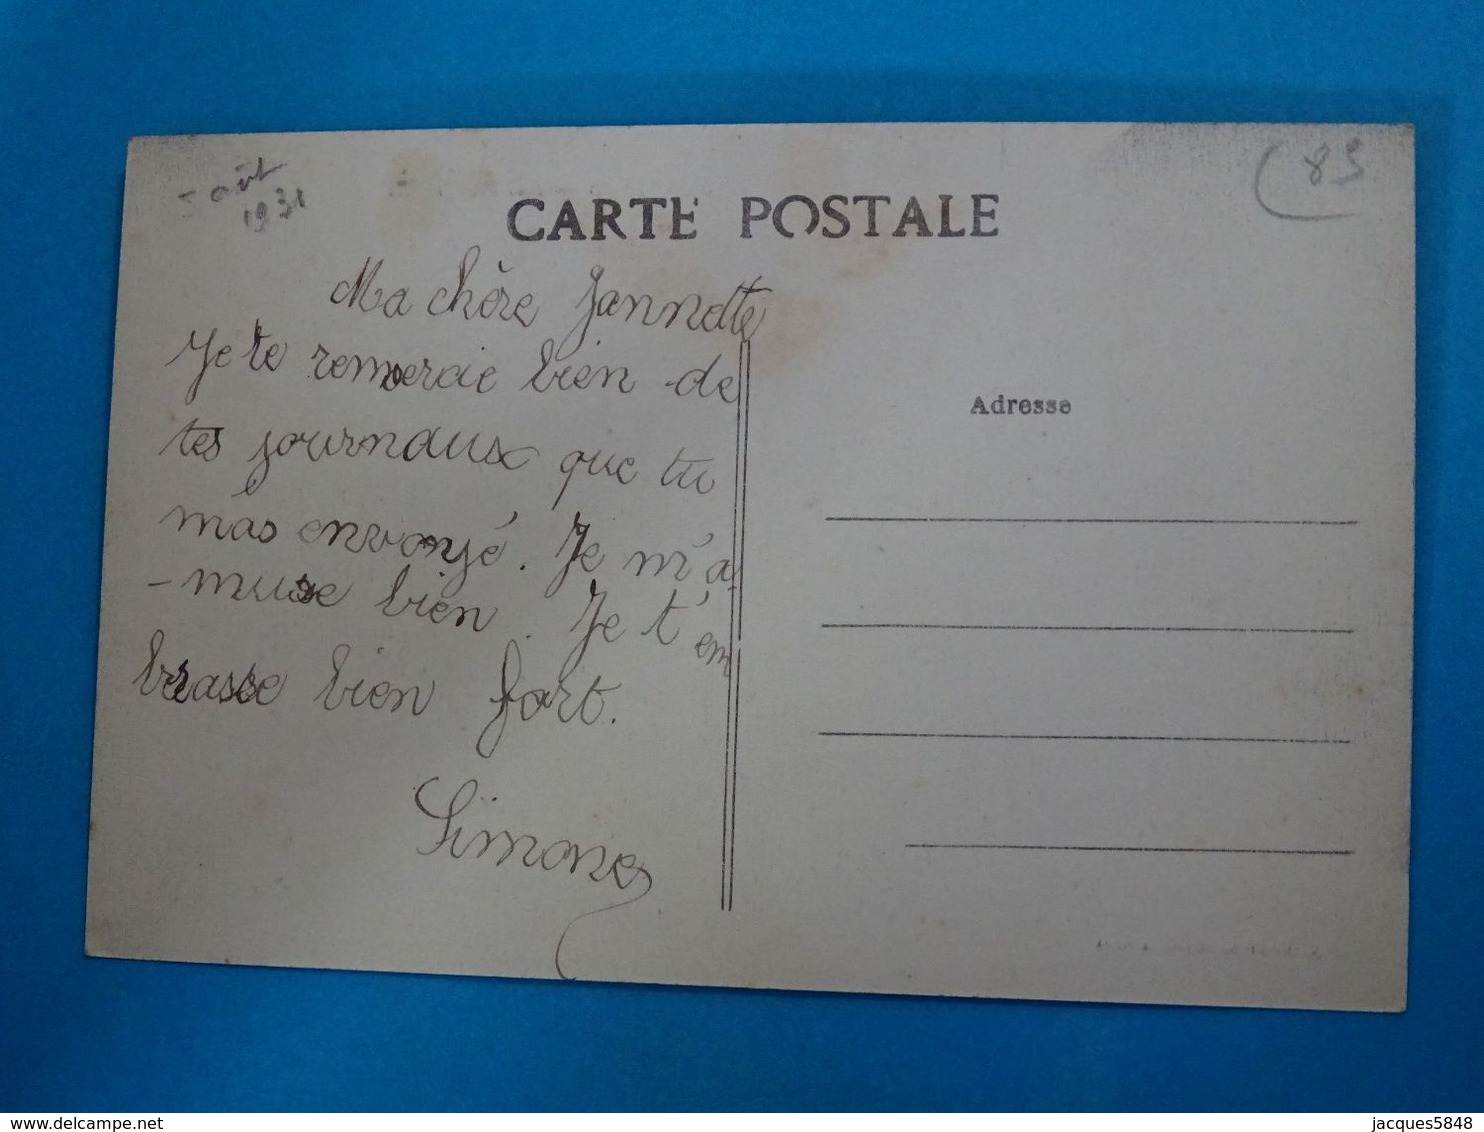 5 août
1931
(83
CARTE POSTALE
Ma chère Jannette
Je te remercie bien de
tes journaux que tu
mas envoyé. Je m'a
-muse bien. Je t'em
brasse bien fort.
Simone
Adresse
delcampe.net
jacques5848